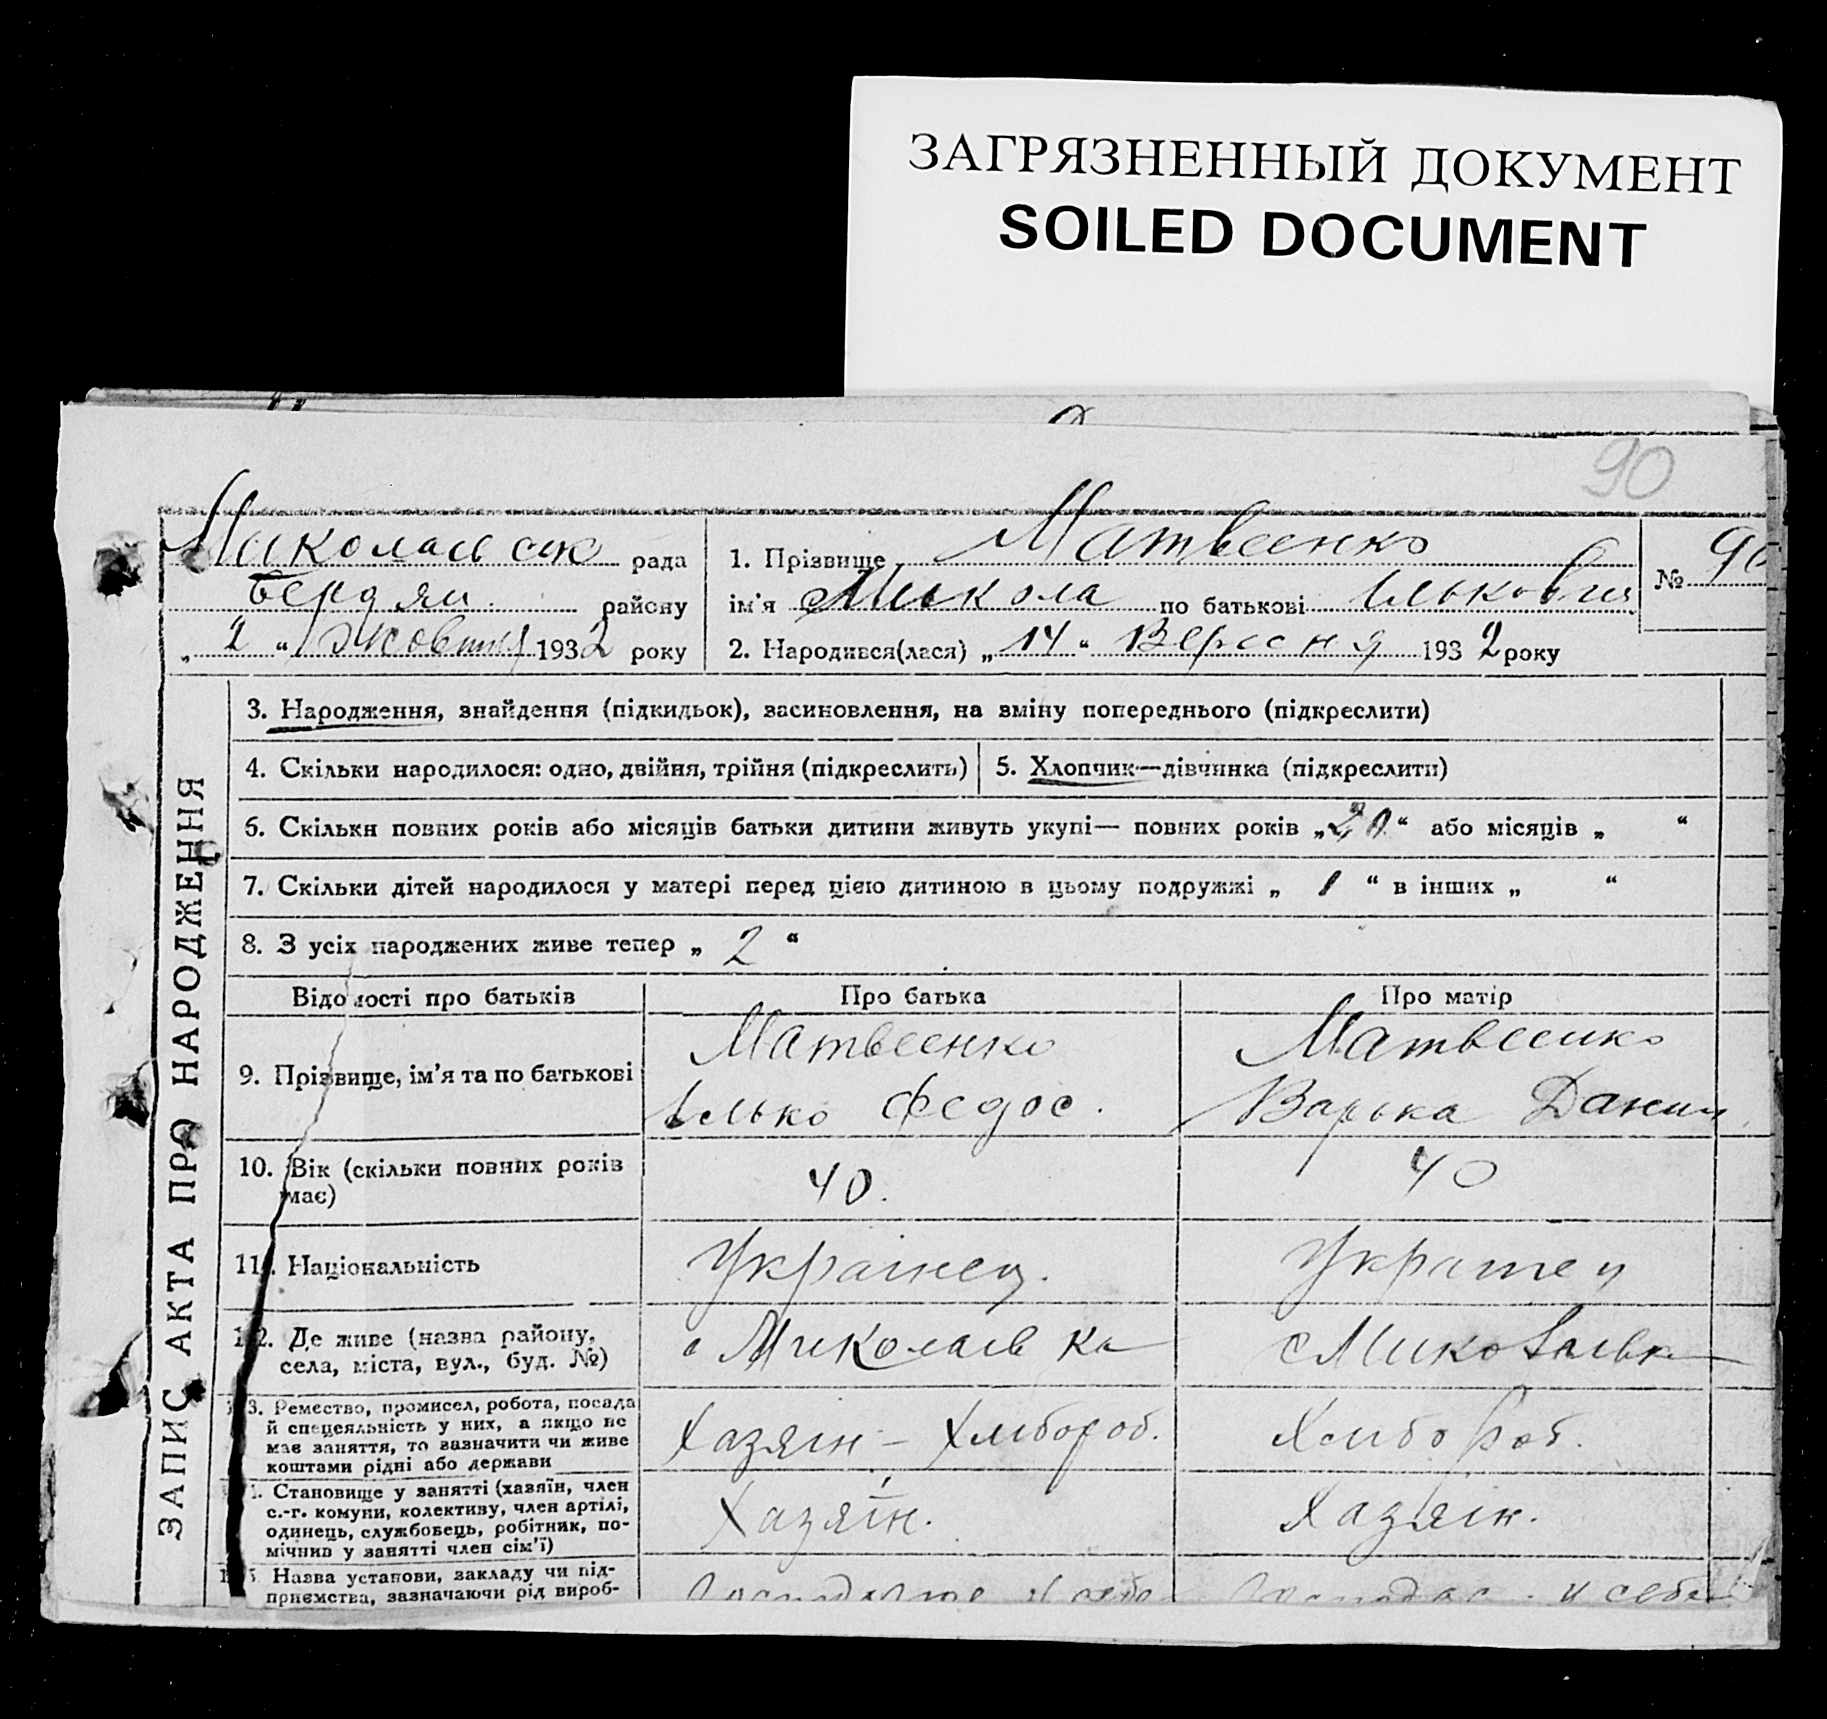 ЗАГРЯЗНЕННЫЙ ДОКУМЕНТ
SOILED DOCUMENT
90
Миколаевск рада
Бердян. району
„ 2 “ Жовтня 1932 року
1. Прізвище Матвеенко
ім'я Микола по батькові Ількович
2. Народився(лася) „ 14 “ Вересня 1932 року
№ 90
ЗАПИС АКТА ПРО НАРОДЖЕННЯ
3. Народження, знайдення (підкидьок), засиновлення, на зміну попереднього (підкреслити)
4. Скільки народилося: одно, двійня, трійня (підкреслить)
5. Хлопчик—дівчинка (підкреслити)
6. Скільки повних років або місяців батьки дитини живуть укупі— повних років „20“ або місяців „ “
7. Скільки дітей народилося у матері перед цією дитиною в цьому подружжі „ 1 “ в інших „ “
8. З усіх народжених живе тепер „ 2 “
Відомості про батьків Про батька Про матір
9. Прізвище, ім'я та по батькові
Матвеенко
Ілько Федос.
Матвеенко
Варька Данил
10. Вік (скільки повних років
має)
40.
40
11. Національність
Українец.
Українец
12. Де живе (назва району,
села, міста, вул., буд. №)
с Миколаевка
с Миколаевк
13. Ремество, промисел, робота, посада
й спецсяльність у них, а якщо не
має заняття, то зазначити чи живе
коштами рідні або держави
Хазяін – Хлибороб.
Хлибороб.
14. Становище у занятті (хазяїн, член
с.-г. комуни, колективу, член артілі,
одинець, службовець, робітник, по-
мічник у занятті член сім'ї)
Хазяїн.
Хазяін.
15. Назва установи, закладу чи під-
приємства, зазначаючи рід вироб-
у себе
у себе